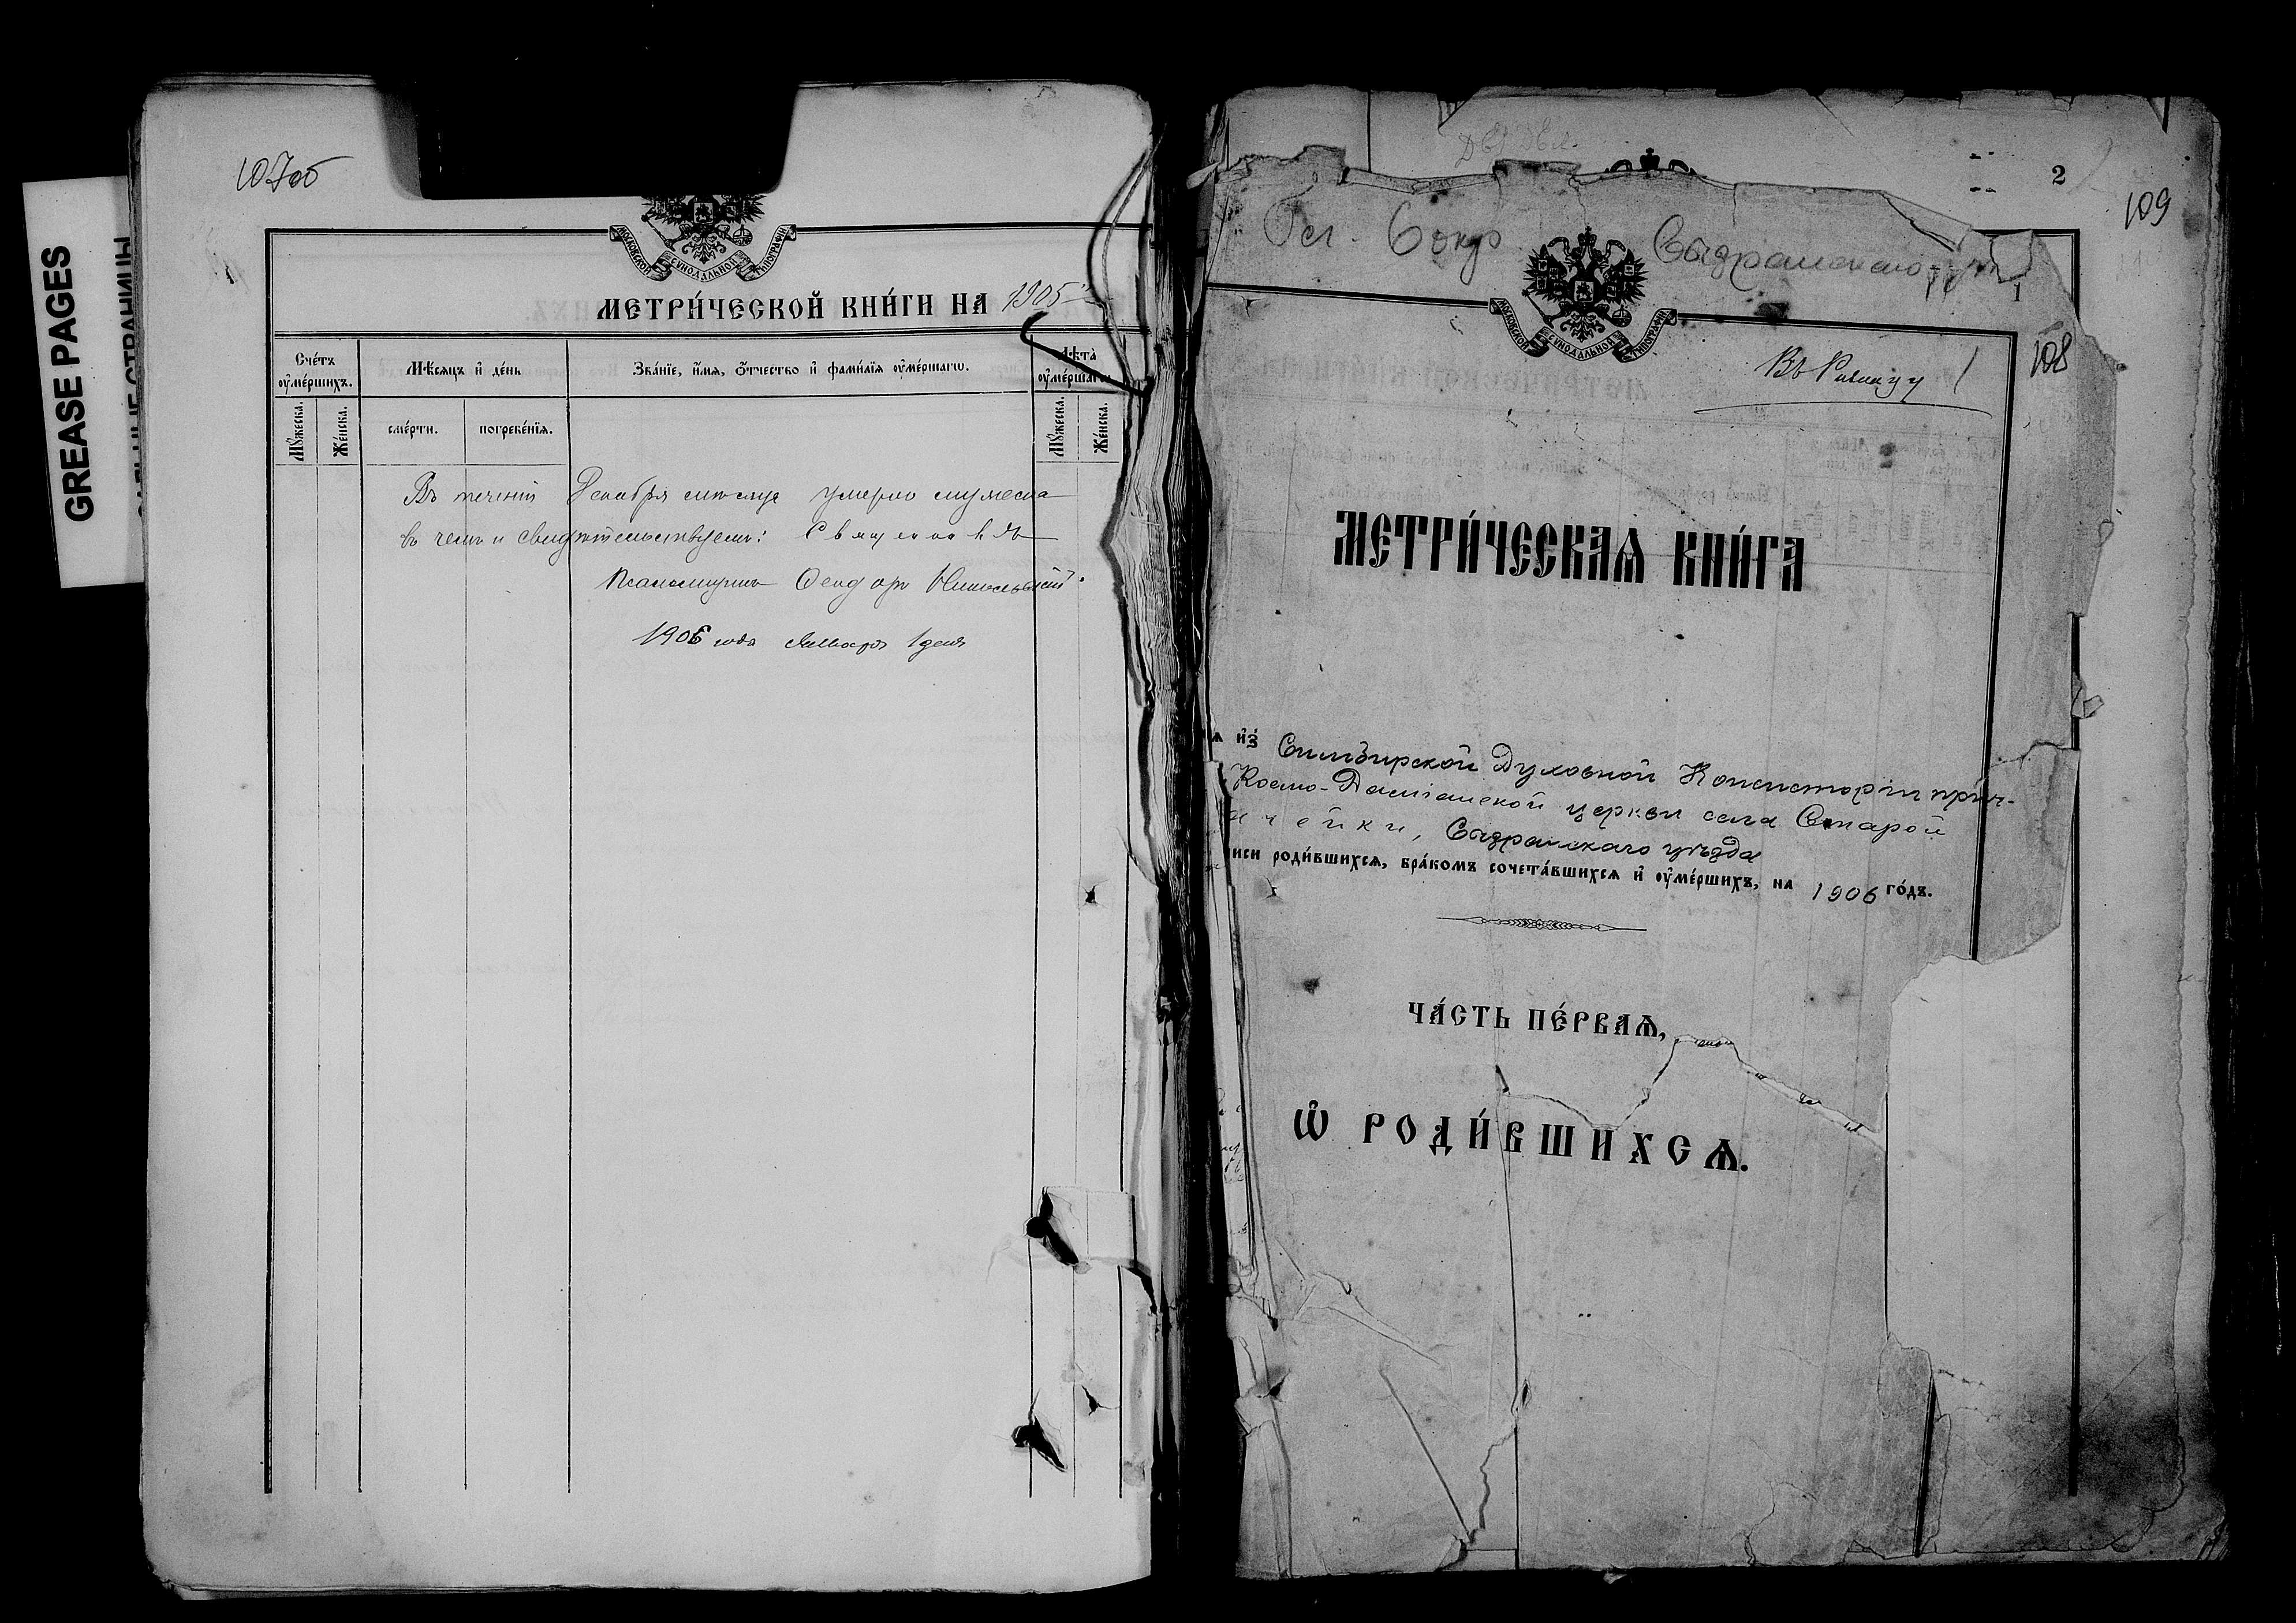 GREASE PAGES
107об
МОСКОВСКОЙ СѴНОДАЛЬНОЙ ТИПОГРАФІИ
МЕТРИ́ЧЕСКОЙ КНИ́ГИ НА 1905
Сче́тъ ᲂу҆ме́ршихъ.
Мѣ́сяцъ и҆ де́нь
Зва́нїе, и҆́мѧ, ѻ҆́тчество и҆ фами́лїѧ ᲂу҆ме́ршагѡ.
Лѣта̀ ᲂу҆ме́ршагѡ
Мꙋ́жеска.
Же́нска.
сме́рти.
погребе́нїѧ.
Мꙋ́жеска.
Же́нска.
Въ теченіи Декабря мѣсяце умерло мужеска
въ чемъ и свидѣтельствуемъ: Священникъ
Псаломщикъ Ѳеодоръ Никольскій
1906 года Января 1 дня
2
109
Сызранскаго
1
МОСКОВСКОЙ СѴНОДАЛЬНОЙ ТИПОГРАФІИ
108
МЕТРИ́ЧЕСКАѦ КНИ́ГА
и҆з̾ Симбирской Духовной Консисторіи прич-
Космо-Даміанской церкви села Старой
Сызранскаго уѣзда
роди́вшихсѧ, бра́комъ сочета́вшихсѧ и҆ ᲂу҆ме́ршихъ, на 1906 го́дъ.
ЧА́СТЬ ПЕ́РВАѦ,
Ѡ҆ РОДИ́ВШИХСѦ.